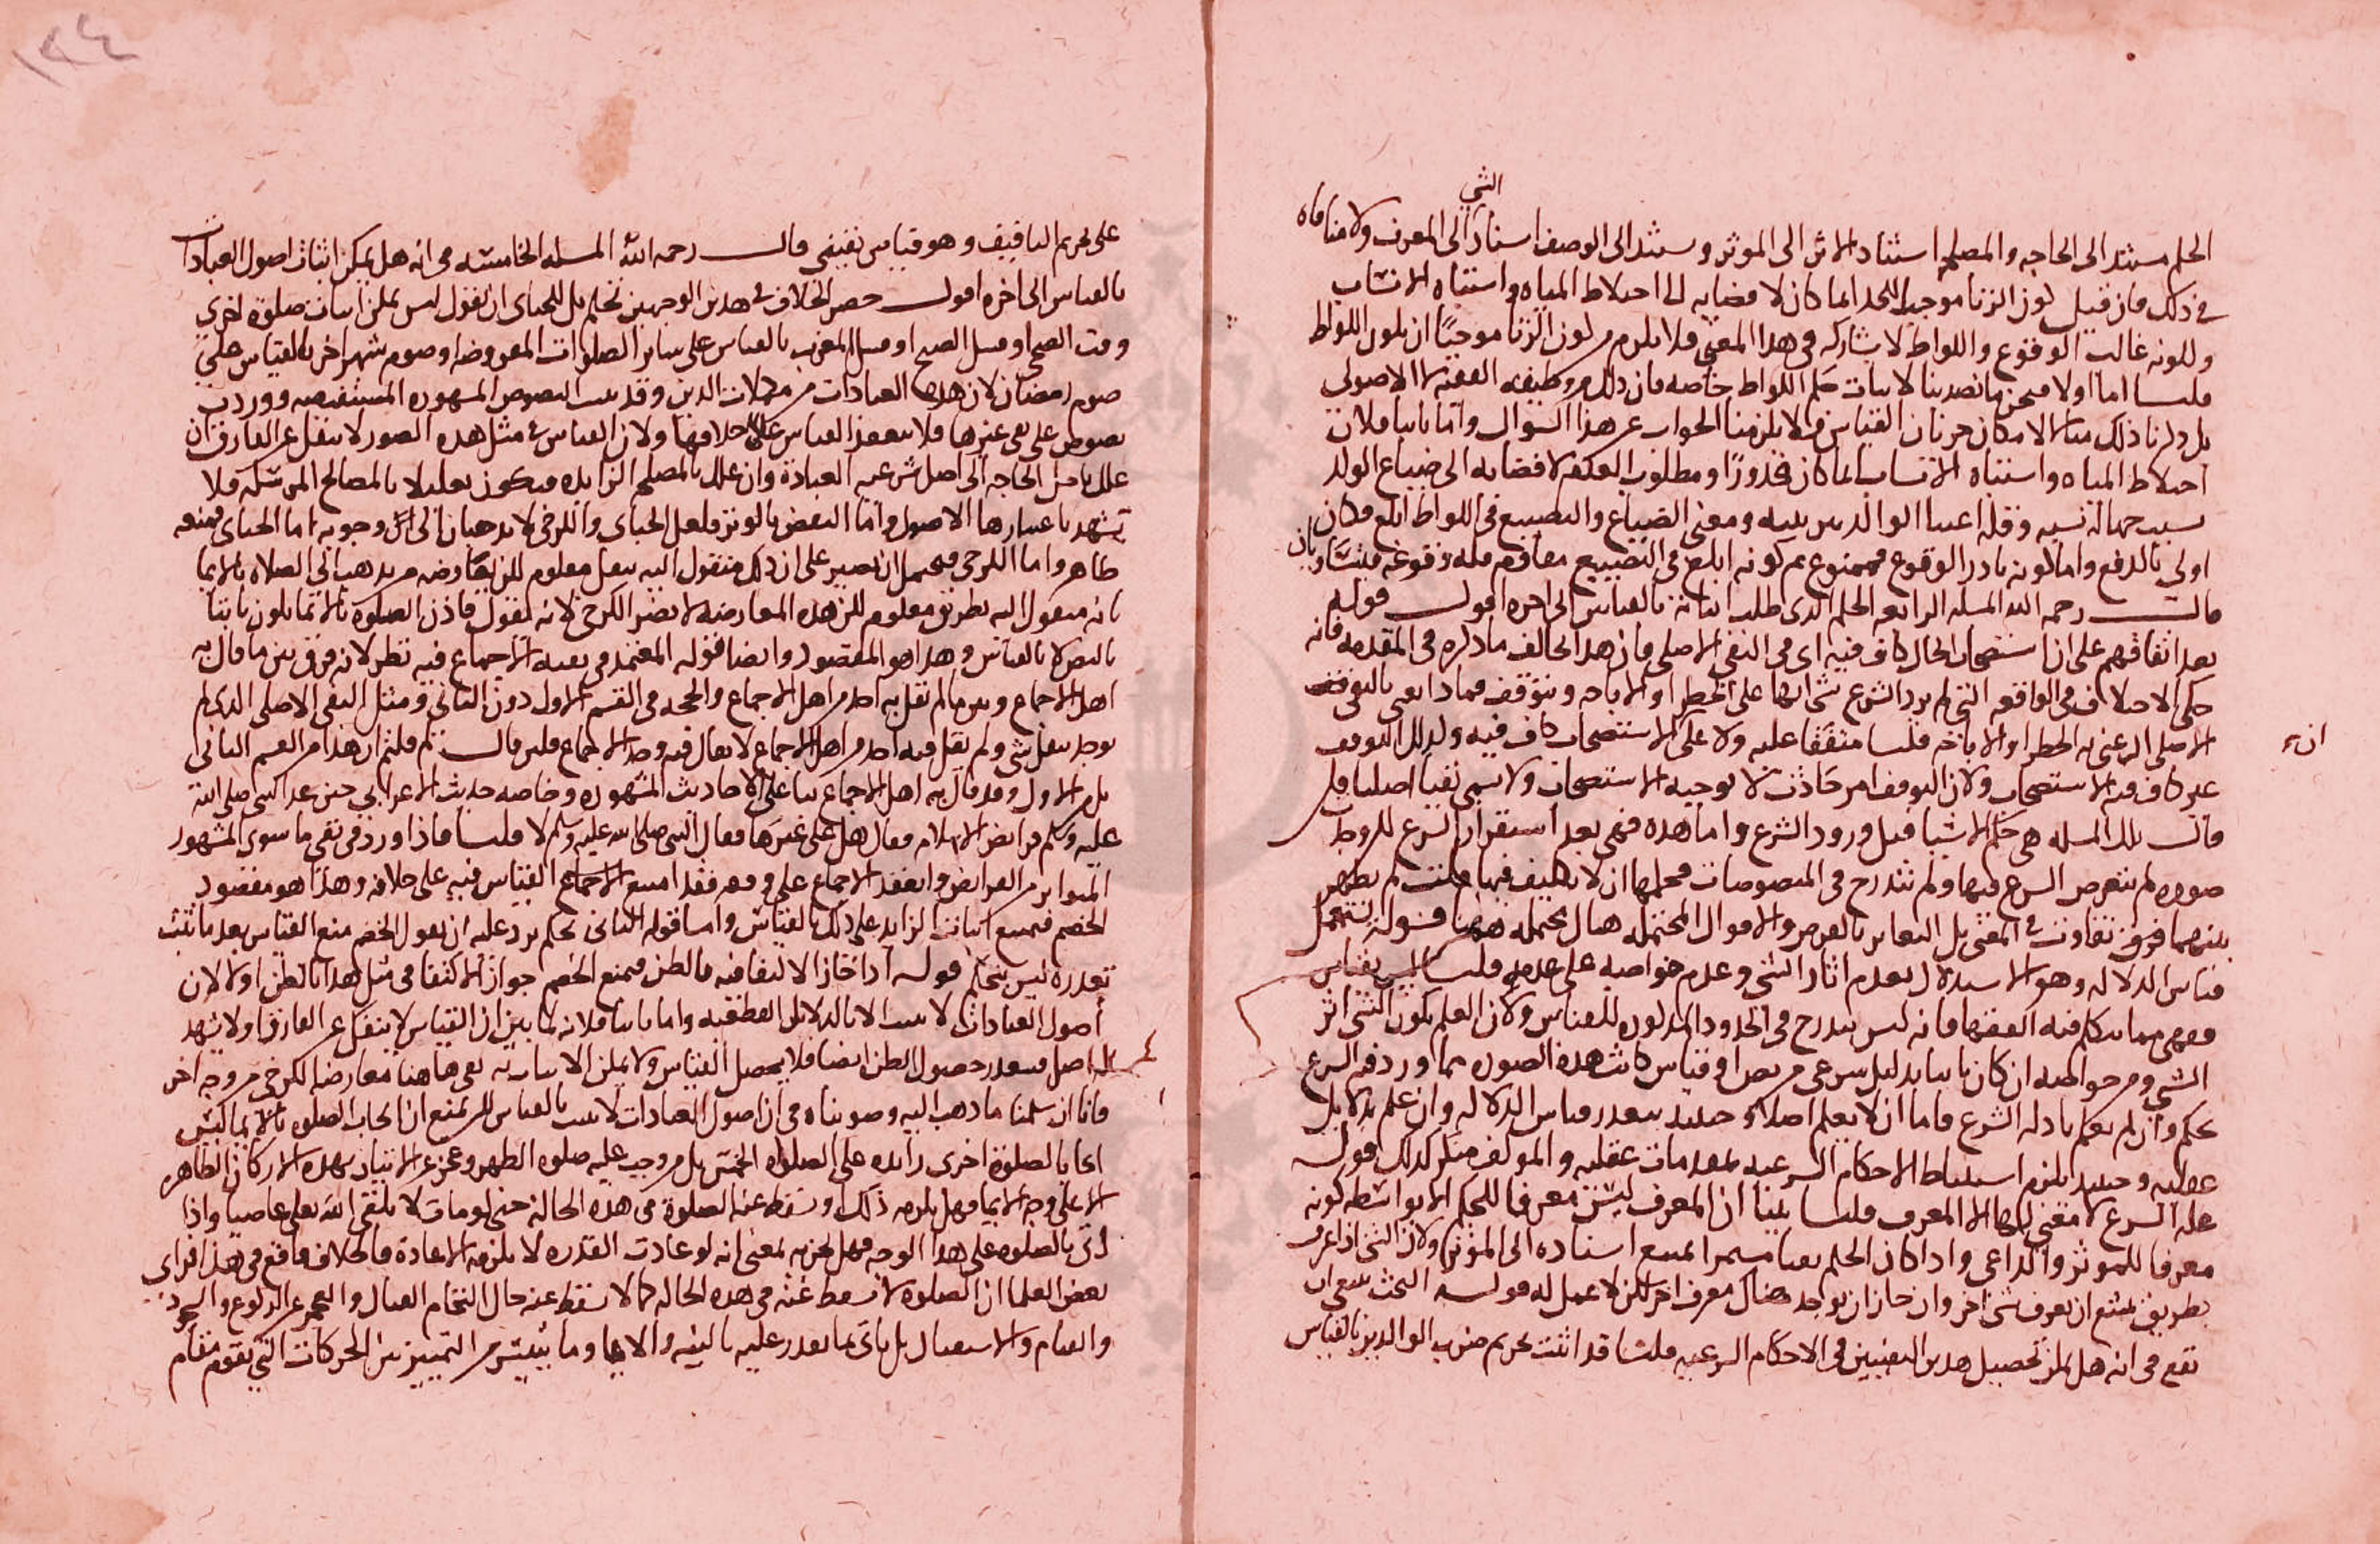 الشي
الحكم مستند الى الحاجه والمصلحه استناد الاثر الى الموثر ومستند الى الوصف استناد الى المعرف ولا منافاه
في ذلك فان قيل كون الزنا موجبا للحد انما كان لافضايه الى اختلاط المياه واشتباه الانساب
ولكونه غالب الوقوع واللواط لا يشاركه في هذا المعنى فلا يلزم من كون الزنا موجبا ان يكون اللواط
قلنا اما اولا فنحن ما تصدينا لاثبات حكم اللواط خاصه فان ذلك من وظيفه الفقيه لا الاصولي
بل ذكرنا ذلك مثالا لامكان جريان القياس فيه فلا يلزمنا الجواب عن هذا السوال واما ثانيا فلان
اختلاط المياه واشتباه الانساب انما كان محذورا ومطلوب العدم لافضايه الى ضياع الولد
بسبب جهاله نسبه وقله اعتنا الوالدين بتربيته ومعنى الضياع والتضييع في اللواط ابلغ فكان
اولى بالدفع واما كونه نادر الوقوع فممنوع ثم كونه ابلغ في التضييع معاوم قله وقوعه فيتساويان
قال رحمه الله المسله الرابعه الحكم الذي طلب اثباته بالقياس الى اخره اقول قوله
بعد اتفاقهم على ان استصحاب الحال كاف فيه اى في النفي الاصلي فان هذا يخالف ما ذكره في المقدمه فانه
حكى الاختلاف في الواقعه التي لم يرد الشرع بشي انها على الحظر او الاباحه ويتوقف فما ذا يعني بالتوقف
الاصلي ان عنى به الحظر او الاباحه قلنا متفقا عليه ولا على الاستصحاب كاف فيه وكذلك التوقف
ان
غير كاف فيه الاستصحاب ولان التوقف امر حادث لا يوجبه الاستصحاب ولا يسمى نفيا اصليا فان
قال تلك المسله هي حكم الاشيا قبل ورود الشرع واما هذه فهي بعد استقرار الشرع للروط
صوره لم يتعرض الشرع فيها ولم تندرج في المنصوصات فحكمها ان لا تكليف فيها قلت لم يظهر
بينهما فرق تفاوت في المعنى بل التغاير بالفرض والاقوال المحتمله هنا محتمله قوله يستعمل
قياس الدلاله وهو الاستدلال بعدم اثار الشي وعدم خواصه على عدمه قلنا ليس بقياس
فقهي مما يتكلم فيه الفقها فانه ليس يندرج في الحدود المذكوره للقياس ولان العلم بكون الشي اثر
الشي ومن خواصه ان كان ثابتا بدليل شرعي من نص او قياس كانت هذه الصوره مما ورد فيه الشرع
بحكم وان لم يعلم بادله الشرع فاما ان لا يعلم اصلا فحينيذ يتعذر قياس الدلاله وان علم بدلايل
عقليه وحينيذ يلزم استنباط الاحكام الشرعيه بمقدمات عقليه والمولف منكر لذلك قوله
عله الشرع لا معنى لها الا المعرف قلنا بينا ان المعرف ليس معرفا للحكم الا بواسطه كونه
معرفا للموثر والداعي واذا كان الحكم نفيا مستمرا امتنع استناده الى الموثر ولان الشي اذا عرف
بطريق يمتنع ان يعرف بشي اخر وان جاز ان يوجد هناك معرف اخر لكن لا عمل له قوله البحث ينبغي ان
يقع في انه هل يمكن تحصيل هذين اليقينين في الاحكام الشرعيه قلنا قد اثبت تحريم ضرب الوالدين بالقياس
١٣٤
على تحريم التافيف وهو قياس يقيني قال رحمه الله المسله الخامسه في انه هل يمكن اثبات اصول العبادات
بالقياس الى اخره اقول حصر الخلاف في هذين الوجهين تحكم بل للجباي ان يقول ليس يمكن اثبات صلوه اخرى
وقت الضحى او قبل الصبح او قبل المغرب بالقياس على ساير الصلوات المفروضه او صوم شهر اخر بالقياس على
صوم رمضان لان هذه العبادات من مهمات الدين وقد ثبتت النصوص المشهوره المستفيضه ووردت
نصوص على نفي غيرها فلا ينعقد القياس على خلافها ولان القياس في مثل هذه الصور لا ينفك عن الفارق ان
علل باصل الحاجه الى اصل شرعيه العباده وان علل بالمصلحه الزايده فيكون تعليلا بالمصالح المرسله فلا
يشهد باعتبارها الاصول واما النقض بالوتر فلعل الجباي والكرخي لا يذهبان الى وجوبه اما الجباي فمنعه
ظاهر واما الكرخي فيحتمل ان يصير على ان ذلك منقول اليه بنقل معلوم لكن يعارضه من يذهب الى الصلاه بالايما
بانه منقول اليه بطريق معلوم لكن هذه المعارضه لا تضر الكرخي لانه يقول فاذن الصلوه بالايما يكون ثابتا
بالنص لا بالقياس وهذا هو المقصود وايضا قوله المعتمد في نفيه الاجماع فيه نظر لانه فرق بين ما قال به
اهل الاجماع وبين ما لم يقل به احد من اهل الاجماع والحجه في القسم الاول دون الثاني ومثل النفي الاصلي الذي لم
يوجد بنقل شي ولم يقل فيه احد من اهل الاجماع لا يقال فيه وجد الاجماع فلين قال ثم قلتم ان هذا من القسم الثاني
بل من الاول وقد قال به اهل الاجماع بنا على الاحاديث المشهوره وخاصه حديث الاعرابي حين عد النبي صلى الله
عليه وسلم فرايض الاسلام فقال هل علي غيرها فقال النبي صلى الله عليه وسلم لا قلنا فاذا ورد في نفي ما سوى المشهور
المتواتر من الفرايض وانعقد الاجماع على وفقه فقد امتنع القياس فيه على خلافه وهذا هو مقصود
الخصم فيمتنع اثبات الزايد على ذلك بالقياس واما قوله الثاني تحكم يرد عليه ان يقول الخصم منع القياس بعد ما ثبت
تعذره ليس بتحكم قوله اذا جاز الاكتفا فيه بالظن فيمنع الخصم جواز الاكتفا في مثل هذا بالظن اولا لان
اصول العبادات لا تثبت الا بالدلايل القطعيه واما ثانيا فلانه لما بين ان القياس لا ينفك عن الفارق ولا يشهد
له اصل فيتعذر حصول الظن ايضا فلا يحصل القياس ولا يمكن الاثبات به بقي هاهنا معارضه الكرخي من وجه اخر
فانا ان سلمنا ما ذهب اليه وصوبناه في ان اصول العبادات لا تثبت بالقياس لكن نمنع ان ايجاب الصلوه بالايما ليس
ايجابا لصلوه اخرى زايده على الصلوات الخمس بل من وجب عليه صلوه الظهر وعجز عن الاتيان بهذه الاركان الظاهره
الا على وجه الايما فهل يلزمه ذلك او تسقط عنه الصلوه في هذه الحاله حتى لو مات لا يلقى الله تعالى عاصيا واذا
اتى بالصلوه على هذا الوجه فهل تجزيه بمعنى انه لو عادت القدره لا يلزمه الاعاده فالخلاف واقع في هذا فراى
بعض العلما ان الصلوه لا تسقط عنه في هذه الحاله كما لا تسقط عنه حال التحام القتال والعجز عن الركوع والسجود
والقيام والاستقبال بل ياتى بما يقدر عليه بالنيه والايما وما يتيسر من التمييز بين الحركات التي تقوم مقام